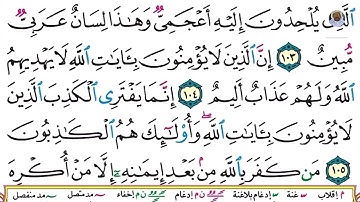 الَّذِي يُلْحِدُونَ إِلَيْهِ أَعْجَمِيٌّ وَهَٰذَا لِسَانٌ عَرَبِيٌّ
مُّبِينٌ ١٠٣ إِنَّ الَّذِينَ لَا يُؤْمِنُونَ بِـَٔايَٰتِ اللَّهِ لَا يَهْدِيهِمُ
اللَّهُ وَلَهُمْ عَذَابٌ أَلِيمٌ ١٠٤ إِنَّمَا يَفْتَرِي الْكَذِبَ الَّذِينَ
لَا يُؤْمِنُونَ بِـَٔايَٰتِ اللَّهِ وَأُو۟لَٰٓئِكَ هُمُ الْكَٰذِبُونَ
١٠٥ مَن كَفَرَ بِاللَّهِ مِنۢ بَعْدِ إِيمَٰنِهِۦٓ إِلَّا مَنْ أُكْرِهَ
م إقلاب س غنة س إدغام بلاغنة ن م إدغام ن م إخفاء مد متصل مد منفصل